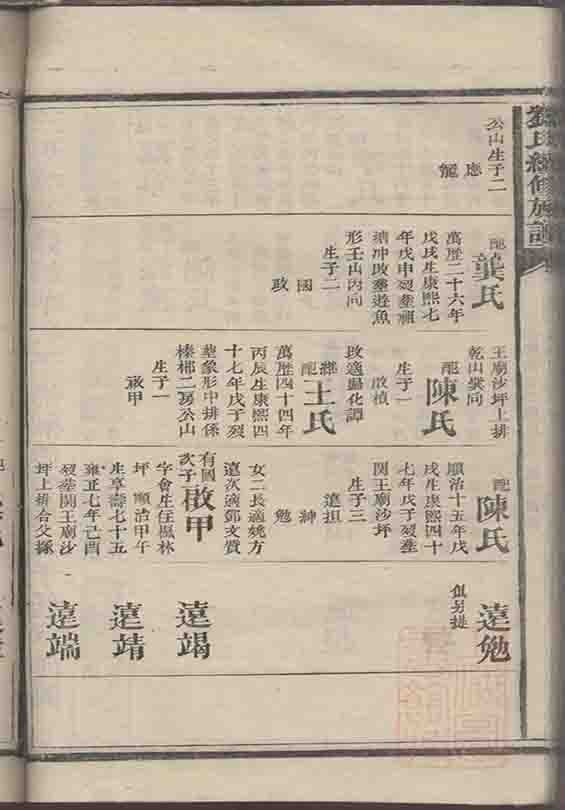 氏續修族譜
公山生子二
應
龍
配
龔氏
萬曆二十六年
戊戌生康熙七
年戊申歿塟祖
塘冲改塟遊魚
形壬山丙向
生子二
國
政
王廟沙坪上排
乾山巽向
配
陳氏
生子一
啟楨
改適歸化譚
繼
配
王氏
萬曆四十四年
丙辰生康熙四
十七年戊子歿
塟象形中排係
榛梆二房公山
生子一
啟甲
配
陳氏
順治十五年戊
戌生康熙四十
七年戊子歿塟
関王廟沙坪
生子三
遠担
紳
勉
女二長適姚方
遠次適鄧文質
有國
次子
啟甲
字會生任楓林
坪 順治甲午
生享壽七十五
雍正七年己酉
歿塟関王廟沙
坪上排合父塚
遠勉
俱另提
遠竭
遠靖
遠端